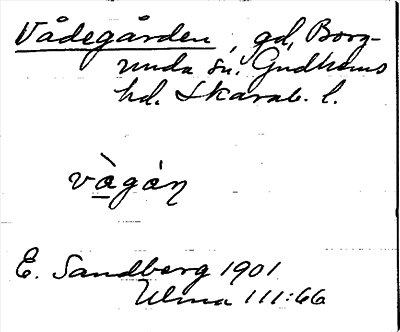 Vådegården, gd, Borg-
unda sn. Gudhems
hd. Skarab. l.
vàgȧŋ
E. Sandberg 1901
Ulma 111:66